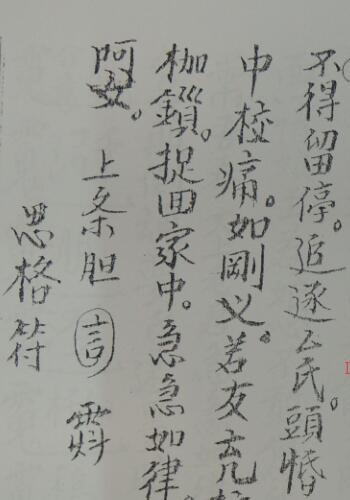 不得留停。追逐厶氏。頭惛
中校痛。如剛义。若友
枷鎖。捉回家中。急急如律
阿女。上条胆言
思格符